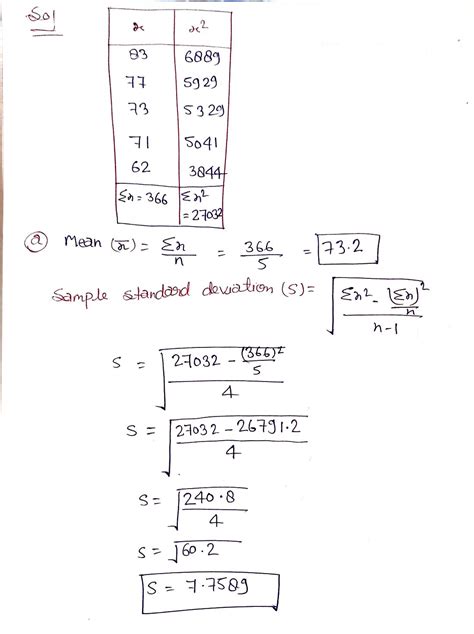 Sol
x x²
83 6889
77 5929
73 5329
71 5041
62 3844
Σx = 366 Σx² = 27032
(a) Mean (x̄) = Σx/n = 366/5 = 73.2
Sample standard deviation (S) = √((Σx² - (Σx)²/n)/(n-1))
S = √((27032 - (366)²/5)/4)
S = √((27032 - 26791.2)/4)
S = √(240.8/4)
S = √60.2
S = 7.7589